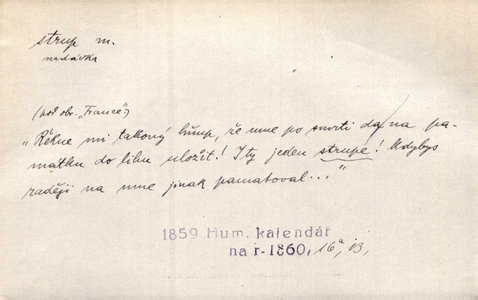 strup m.
nadávka
(pod obr. „Francé“)
„Řekne mi takový hňup, že mne po smrti dá na pa-
mátku do lihu uložit! I ty jeden strupe! Kdybys
raději na mne jinak pamatoval..."
1859 Hum. kalendář
na r. 1860, 16a, 13,